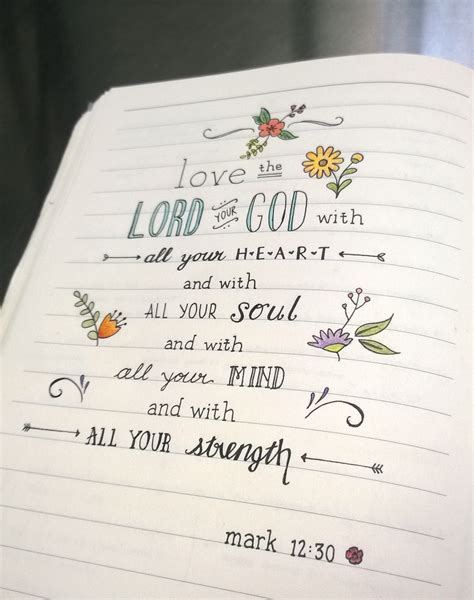 love the
LORD YOUR GOD with
all your H•E•A•R•T
and with
ALL YOUR soul
and with
all your MIND
and with
ALL YOUR strength
mark 12:30